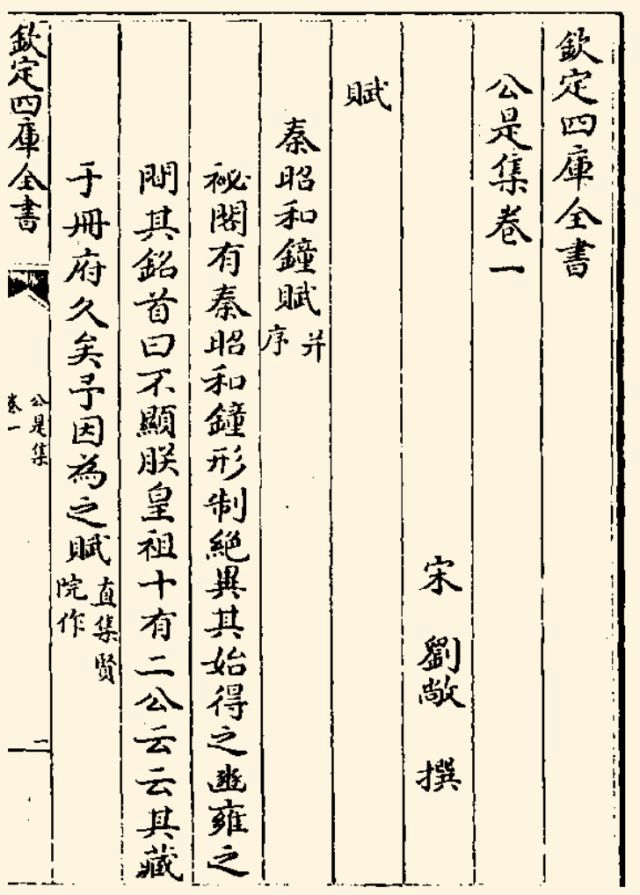 欽定四庫全書
公是集卷一
宋 劉敞 撰
賦
秦昭和鐘賦并序
祕閣有秦昭和鐘形制絶異其始得之豳雍之
間其銘首曰不顯朕皇祖十有二公云云其藏
于冊府久矣予因為之賦直集賢院作
欽定四庫全書
公是集
卷一
一